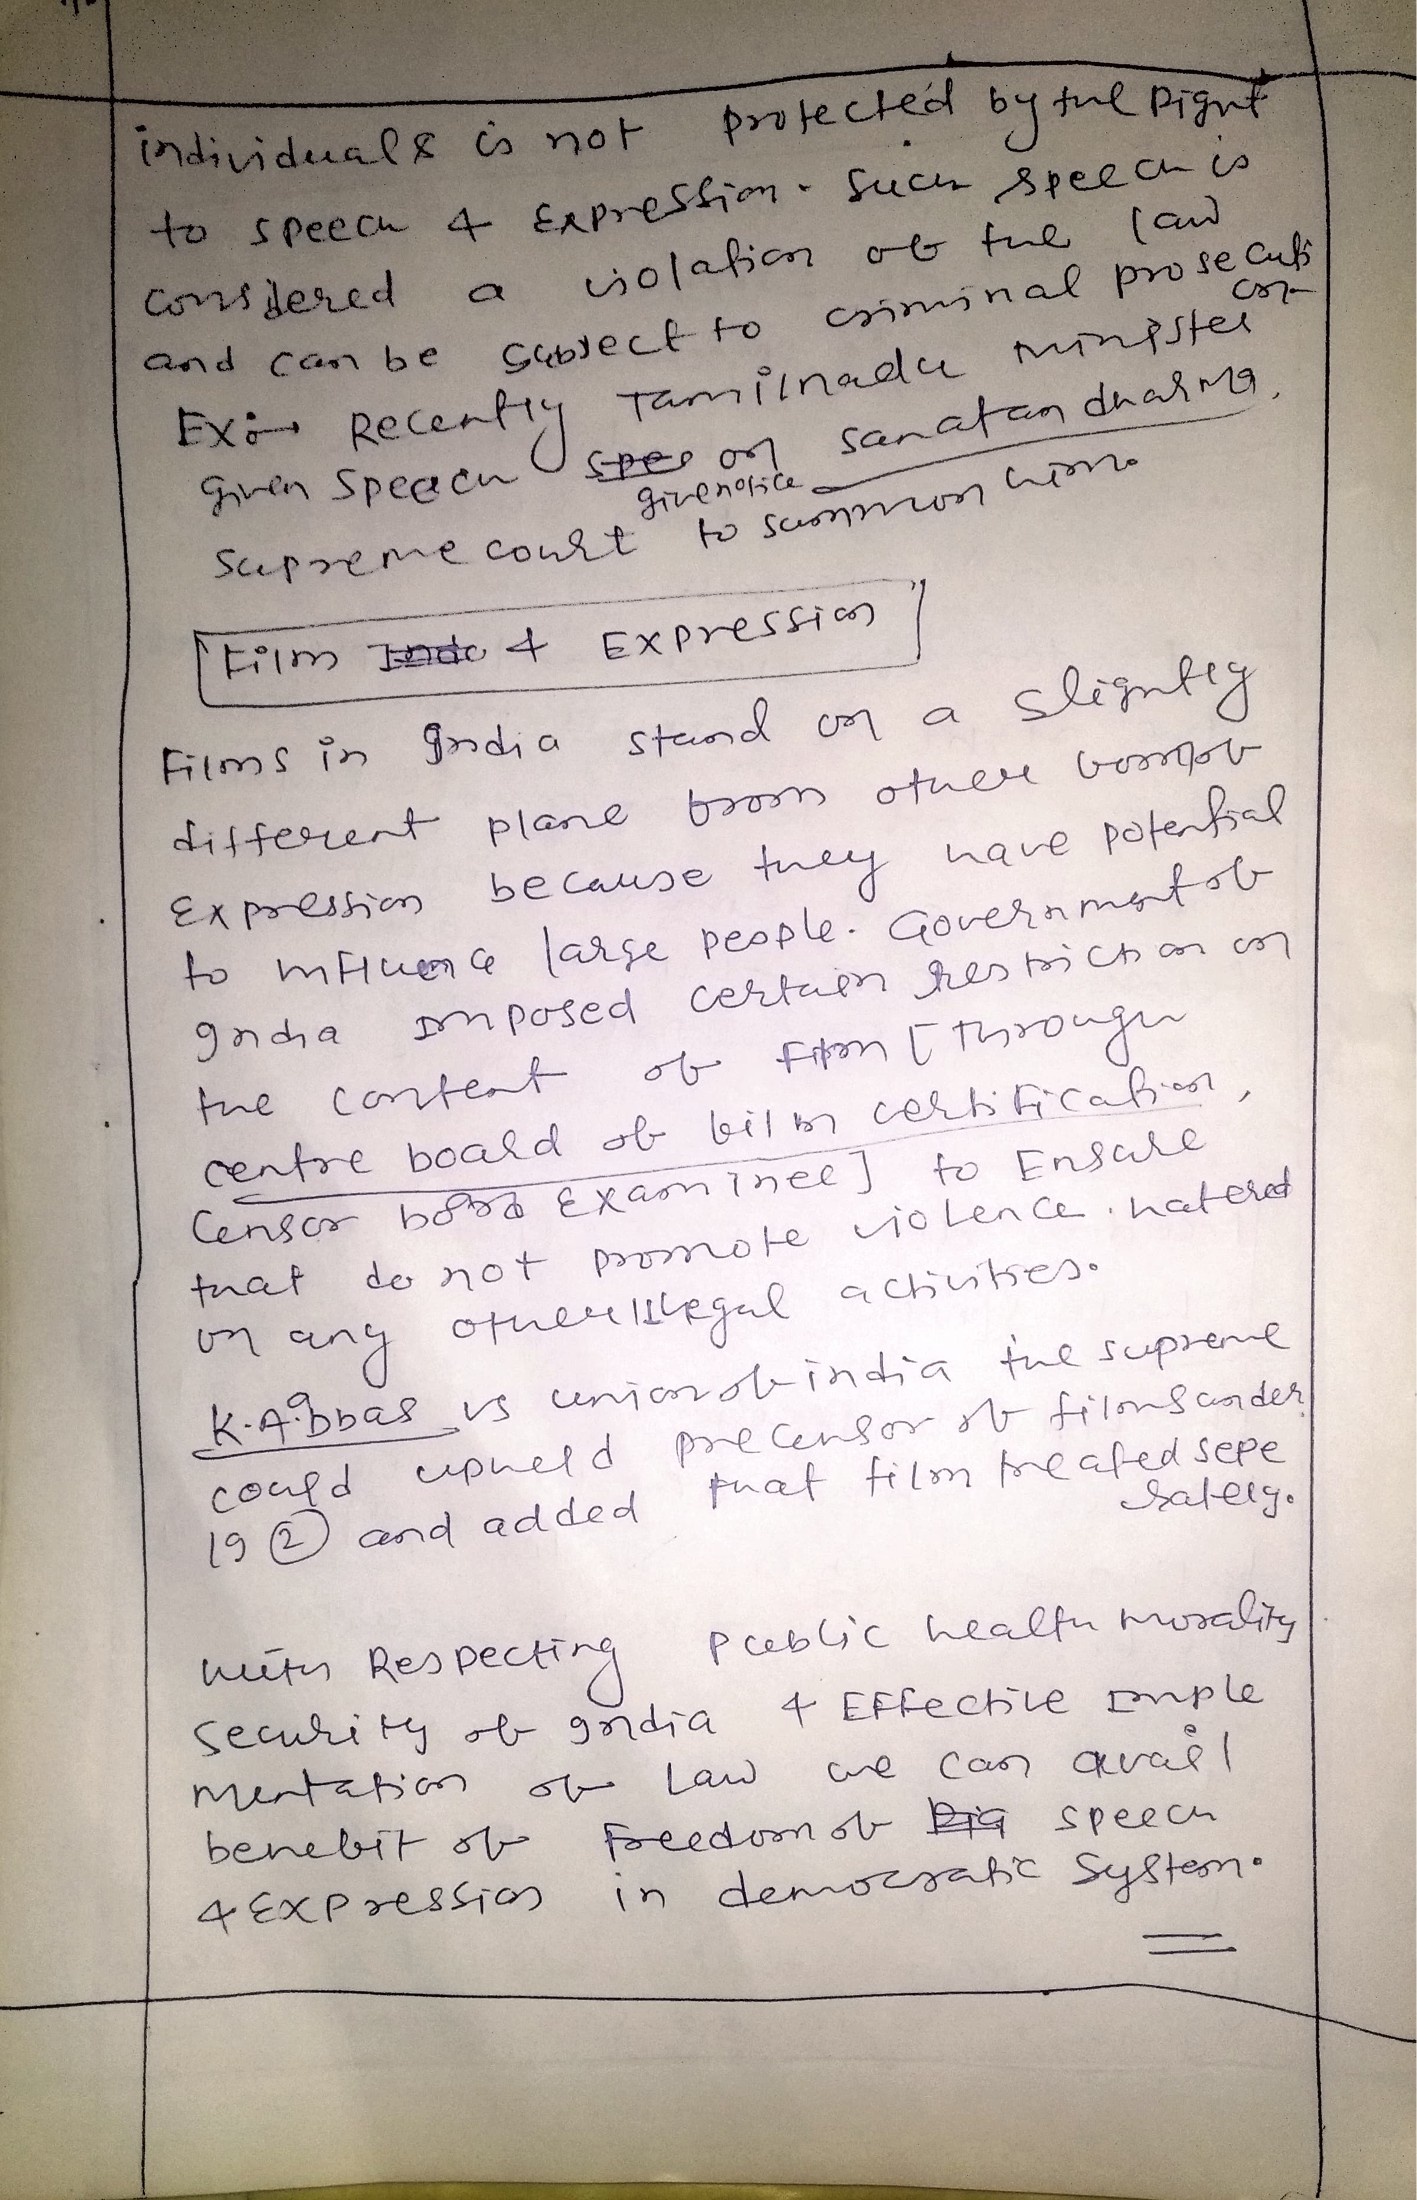 individuals is not protected by the Right
to speech & Expression. Such speech is
considered a violation of the law
and can be subject to criminal prosecuti
on
Ex:→ Recently Tamilnadu minister
given speech on sanatan dharma,
give notice
supreme court to summon him.
Film & Expression
Films in India stand on a slightly
different plane from other form of
Expression because they have potential
to influence large people. Government of
India imposed certain restriction on
the content of film [through
centre board of film certification,
Censor board Examinee] to Ensure
that do not promote violence. hatered
or any other illegal activities.
K.A. Abbas vs union of india the supreme
could upheld precensor of films under
19 (2) and added that film treated sepe
rately.
with Respecting public health morality
security of India & Effective imple
mentation of Law we can avail
benefit of freedom of speech
& Expression in democratic system.